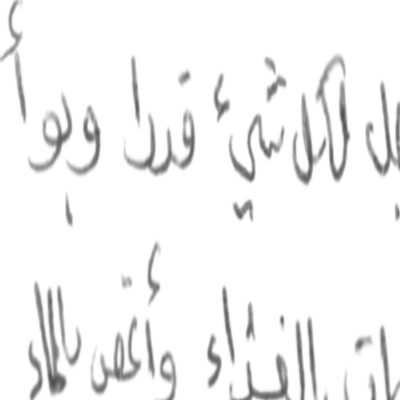 لكل شيء قدرا وبوأ
الغذاء وأغص بالماء